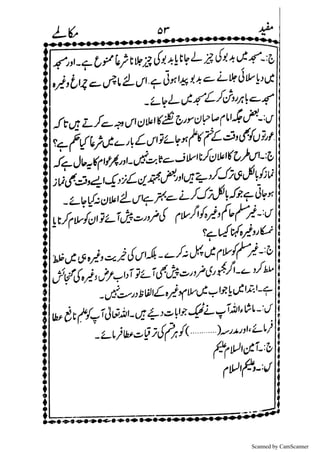 مفید ۵۳ مکالمے
ج:۔ مسجد میں بدبو کی چیز لے جانا یا بدبو کی چیز جلانا شرعاً ممنوع ہے۔ اور مسجد
میں دیا سلائی جلانے سے بدبو پیدا ہوتی ہے۔ اس لئے ماچس سے چراغ وغیرہ
مسجد سے باہر روشن کر کے مسجد میں لے جائے۔
س:۔ بعض جگہ امام صاحبان سورج گہن کا اعلان اس وجہ سے کرتے ہیں تاکہ
عورتوں کو بھی وقت کے ختم کا علم ہو جائے تو اس کے بارے میں شرعاً کیا حکم ہے؟
ج:۔ اس طرح کا اعلان کرنا اسلاف سے ثابت نہیں۔ اور پھر عوام کا یہ حال ہے کہ
نماز کو بالکل ہی ترک کر دیتے ہیں اور بعض مجتہدین کے نزدیک ایسے وقت بھی نماز
ہو جاتی ہے جو کہ بالکل ترک کرنے سے بہتر ہے اس لئے اعلان نہ کیا جائے۔
س:۔ غیر مسلم حاکم وغیرہ کو اگر سلام کی ضرورت پیش آئے تو ان کو سلام کرنا یا
نمسکار وغیرہ کہنا کیسا ہے؟
ج:۔ غیر مسلم کو سلام میں پہل نہ کرے۔ بلکہ اس کی خیریت وغیرہ میں ہی خلط
ملط کر دے۔ اگر مجبوری ضرورت پیش بھی آئے تو آداب عرض وغیرہ کی گنجائش
ہے۔ ابتدا میں یا جواب میں سلام وغیرہ کے الفاظ درست نہیں۔
س:۔ ماشاء اللہ آپ نے جوابات دیئے ہیں۔ اللہ تعالیٰ آپ کو علم نافع عطا
فرمائے، اور مدرسہ (............) کو ہر قسم کی ترقیات عطا فرمائے۔
ج:۔ آمین السلام علیکم
س:۔ وعلیکم السلام
Scanned by CamScanner